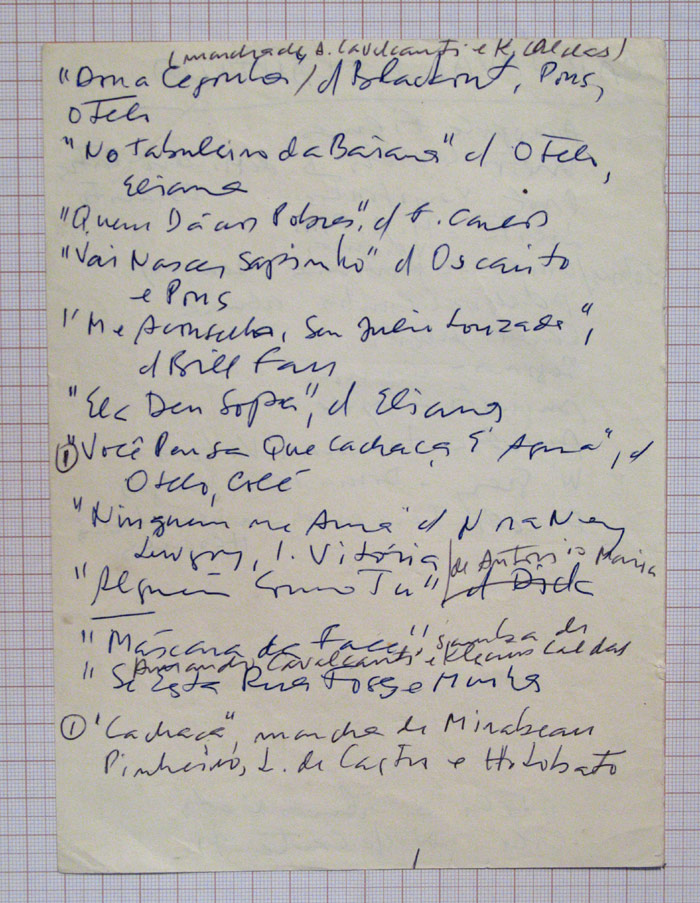 (marcha de A. Cavalcanti e K. Caldas)
"Dona Cegonha / d Blackout, Pons,
Otelo
"No Tabuleiro da Baiana" d Otelo,
Eliana
"Quem Dá aos Pobres", d F. Carlos
"Vai Nascer Sapinho" d Oscarito
e Pons
"Me Aconselha, Seu Julio Louzada",
d Bill Farr
"Ela Deu Sopa", d Eliana
(1) "Você Pensa Que Cachaça É Água", d
Otelo, Colé
"Ninguém me Ama" d Nora Ney
I. Vitória / de Antonio Maria
"Alguém Como Tu" d Dick
"Máscara da Face", samba de
Armando Cavalcanti e Klecius Caldas
"Se Esta Rua Fosse Minha
(1) "Cachaça", marcha de Mirabeau
Pinheiro, L. de Castro e H. Lobato